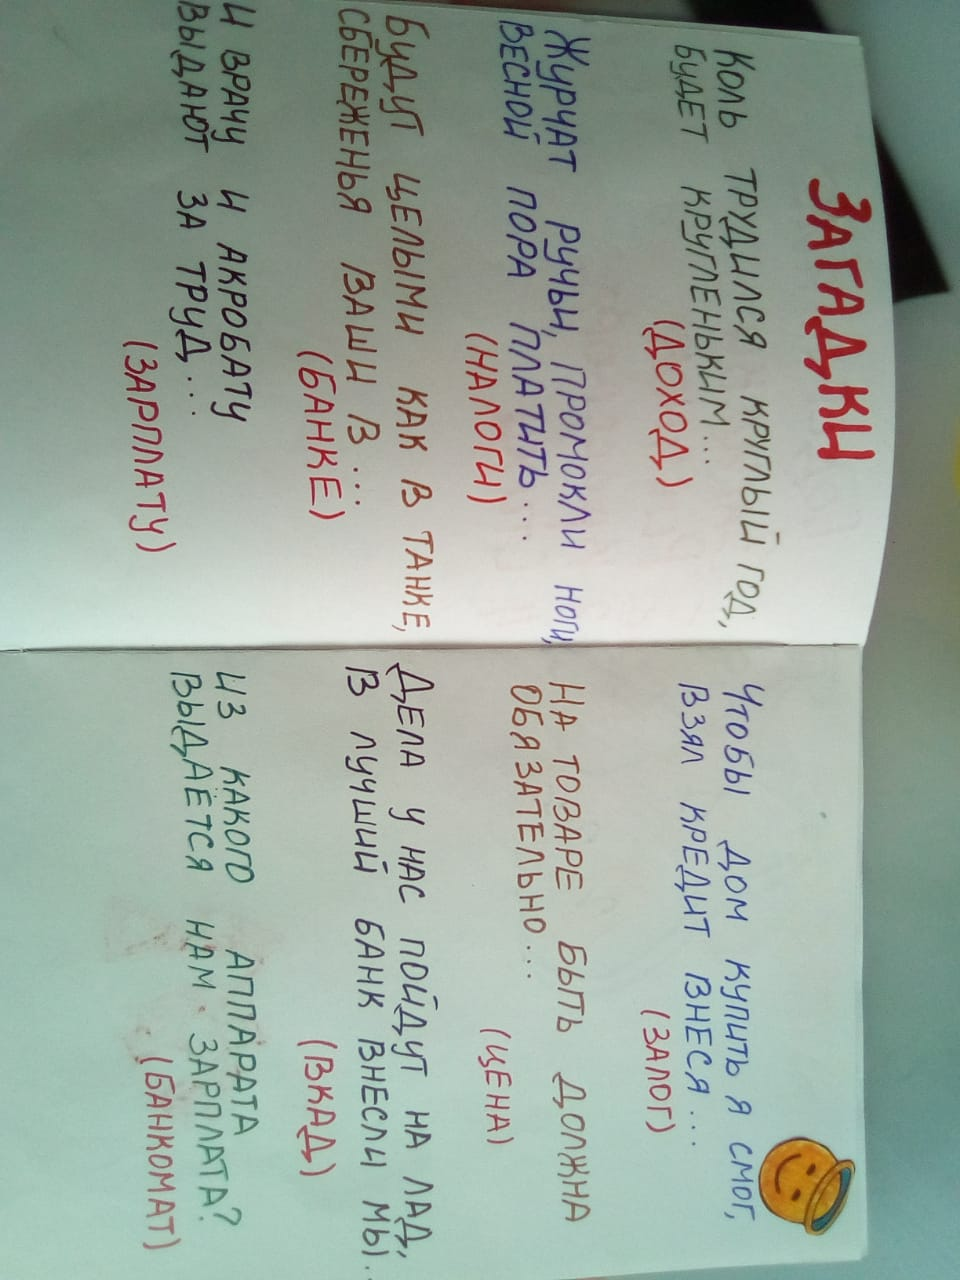 ЗАГАДКИ
КОЛЬ ТРУДИЛСЯ КРУГЛЫЙ ГОД,
БУДЕТ КРУГЛЕНЬКИМ...
(ДОХОД)
ЖУРЧАТ РУЧЬИ, ПРОМОКЛИ НОГИ,
ВЕСНОЙ ПОРА ПЛАТИТЬ...
(НАЛОГИ)
БУДУТ ЦЕЛЫМИ КАК В ТАНКЕ,
СБЕРЕЖЕНЬЯ ВАШИ В....
(БАНКЕ)
И ВРАЧУ И АКРОБАТУ
ВЫДАЮТ ЗА ТРУД...
(ЗАРПЛАТУ)
ЧТОБЫ ДОМ КУПИТЬ Я СМОГ,
ВЗЯЛ КРЕДИТ ВНЕСЯ...
(ЗАЛОГ)
НА ТОВАРЕ БЫТЬ ДОЛЖНА
ОБЯЗАТЕЛЬНО...
(ЦЕНА)
ДЕЛА У НАС ПОЙДУТ НА ЛАД,
В ЛУЧШИЙ БАНК ВНЕСЛИ МЫ...
(ВКАД)
ИЗ КАКОГО АППАРАТА
ВЫДАЁТСЯ НАМ ЗАРПЛАТА?
(БАНКОМАТ)